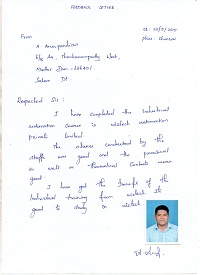 FEEDBACK LETTER
From
place: Chennai
A. Arun pandiyan
Salem Dt.
Respected Sir:
I have completed the Industrial
automation course in wistech automation
private limited.
The classes conducted by the
staffs are good and the practical
as well as theoretical Contents were
good.
I have got the benefit of the
Individual training from wistech. It
good to study in wistech.